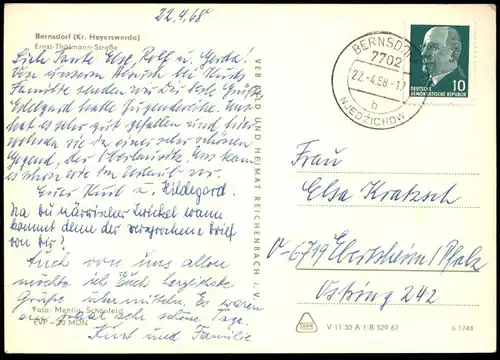 22.4.68
Bernsdorf (Kr. Hoyerswerda)
Ernst-Thälmann-Straße
Liebe Tante Else, Rolf u. Gerda!
Von unserem Besuch bei Kurts
Familie senden wir Dir liebe Grüße.
Edelgard hatte Jugendweihe. Uns
hat es sehr gut gefallen und hier
wohnen sie in einer sehr schönen
Gegend, der Oberlausitz. Uns kam
es schon wie ein Urlaub vor.
Euer Kurt u. Hildegard.
Na Du wann
kommt denn der versprochene Brief
von Dir?
Auch von uns allen
möchte ich Euch herzlichste
Grüße übermitteln. Es waren
ein paar sehr schöne Tage.
Kurt und Familie
Foto: Mehlig, Schönfeld
EVP -20 MDN
VEB BILD UND HEIMAT REICHENBACH i. V.
BERNSDORF
7702
22.-4.68-17
b
NJEDZICHOW
DEUTSCHE
DEMOKRATISCHE REPUBLIK
10
Frau
Elsa Kratzsch
D-6719 Ebertsheim/Pfalz
Ostring 242
V 11 50 A 1 B 529 67
6 1744